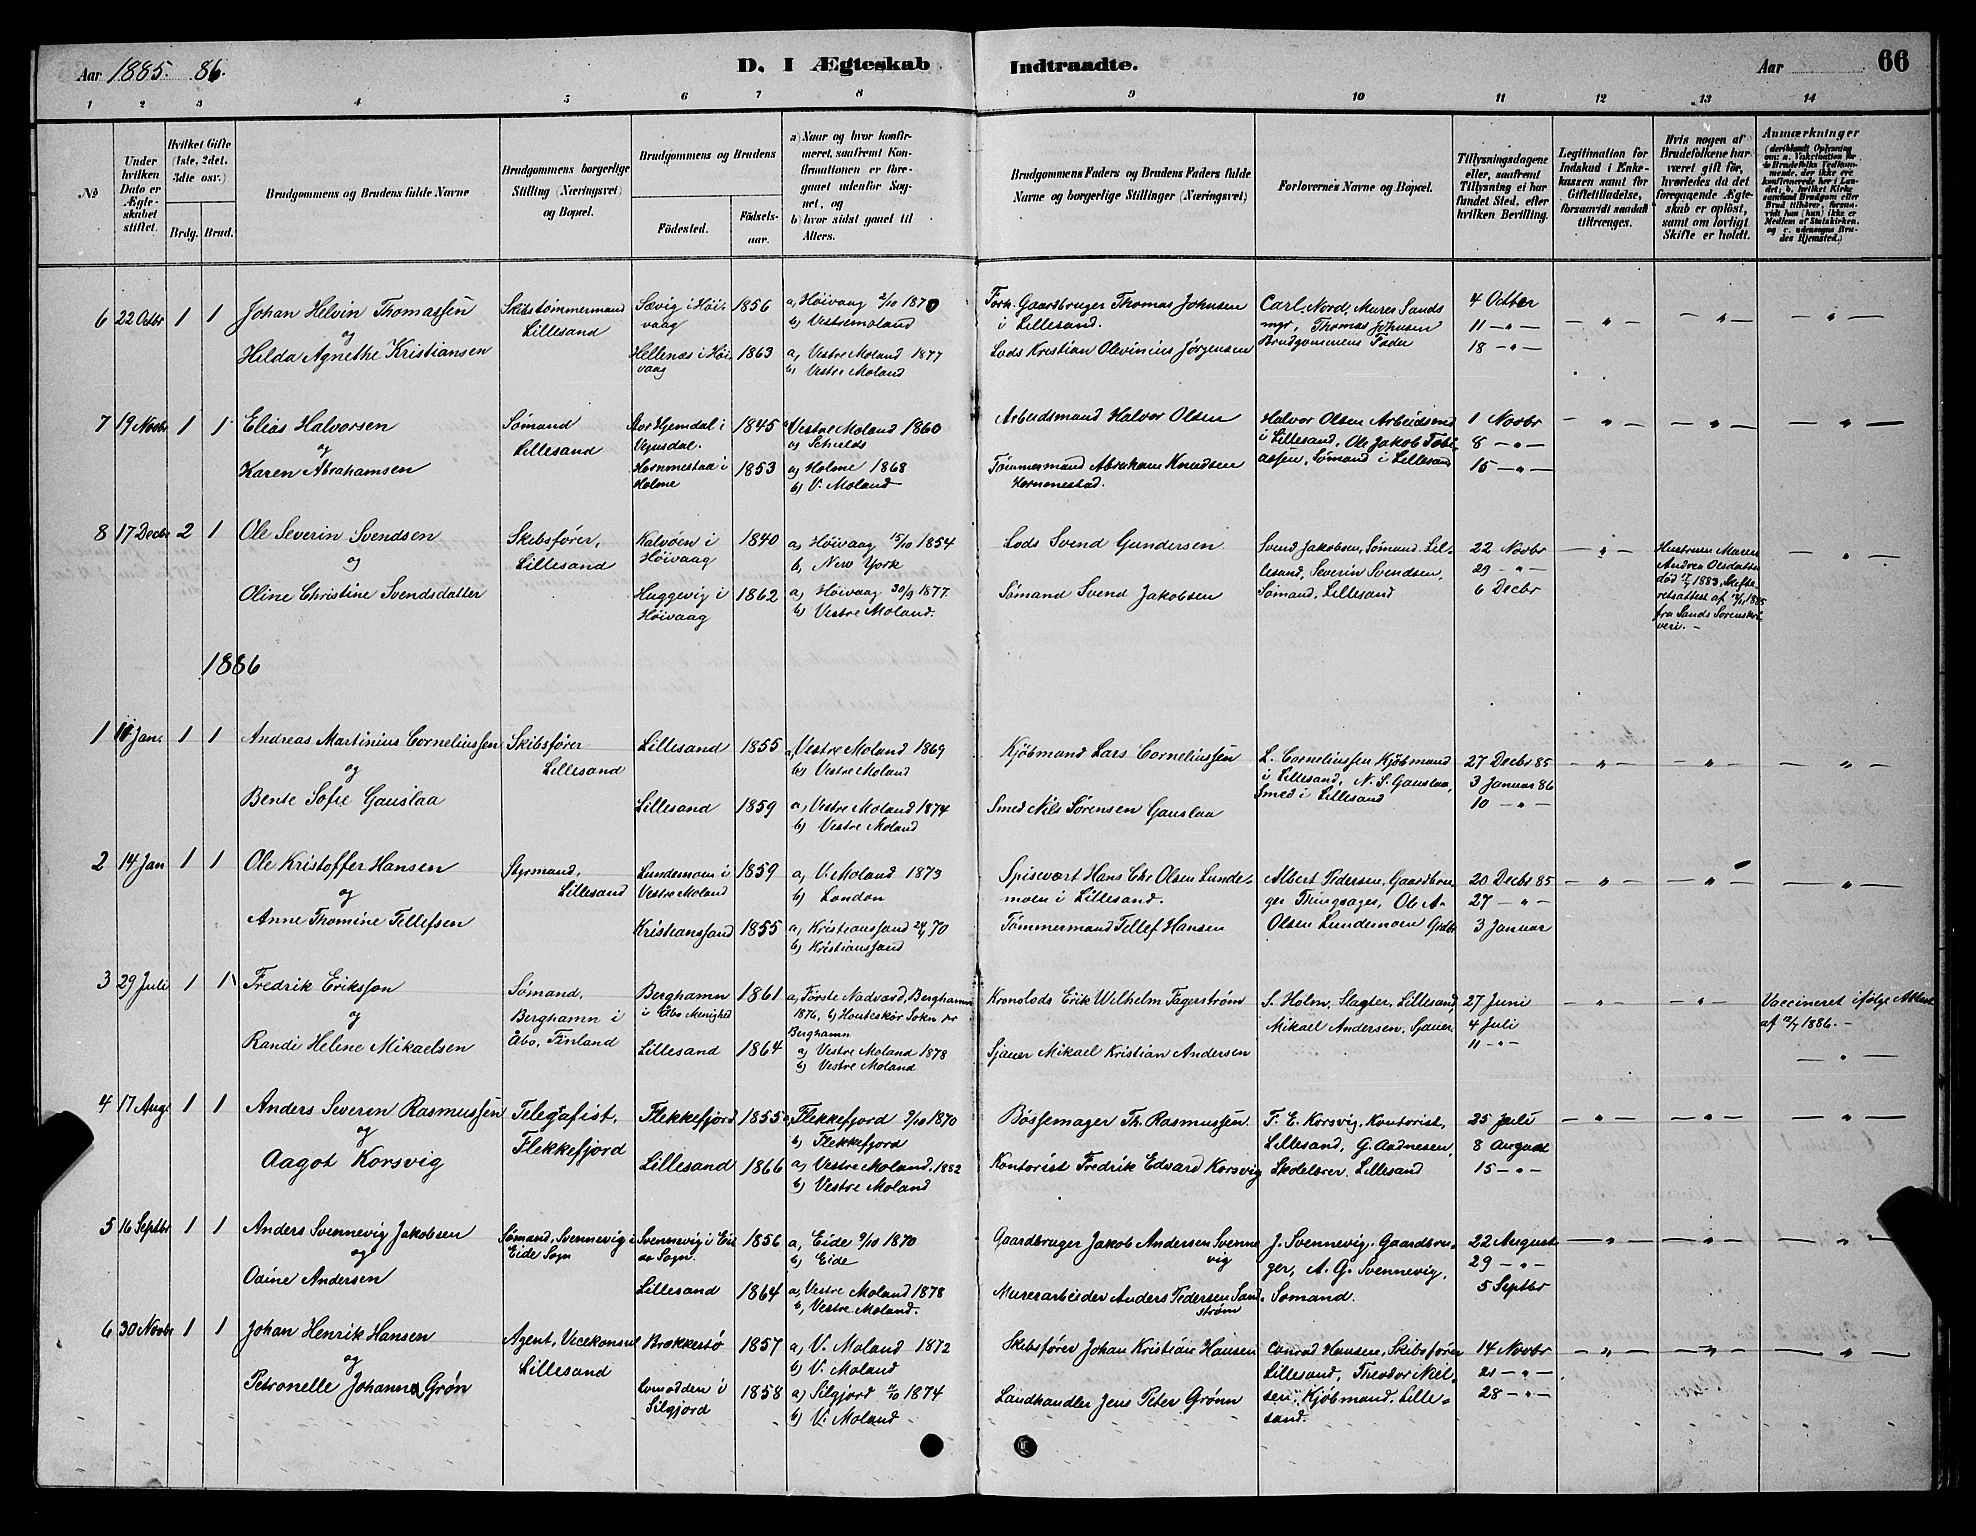 Aar 1885. 86.
D. I Ægteskab Indtraadte.
Aar
66
1 2 3 4 5 6 7 8 9 10 11 12 13 14
No
Under hvilken Dato er Ægteskabet stiftet.
Hvilket Gifte (1ste, 2det, 3die osv.)
Brdg. Brud.
Brudgommens og Brudens fulde Navne
Brudgommens borgerlige Stilling (Næringsvei) og Bopæl.
Brudgommens og Brudens
Fødested.
Fødselsaar.
a) Naar og hvor konfirmeret, saafremt Konfirmationen er foregaaet udenfor Sognet, og
b) hvor sidst gaaet til Alters.
Brudgommens Faders og Brudens Faders fulde Navne og borgerlige Stillinger (Næringsvei)
Forlovernes Navne og Bopæl.
Tillysningsdagene eller, saafremt Tillysning ei har fundet Sted, efter hvilken Bevilling.
Legitimation for Indskud i Enkekassen samt for Giftetilladelse, forsaavidt saadan tiltrænges.
Hvis nogen af Brudefolkene har været gift før, hvorledes da det foregaaende Ægteskab er opløst, samt om lovligt Skifte er holdt.
Anmærkninger (deriblandt Oplysning om: a. Vaksination for de Brudefolks Vedkommende, der ikke ere konfirmerede her i Landet; b. hvilket Kirkesamfund Brudgom eller Brud tilhører, forsaavidt han (hun) ikke er Medlem af Statskirken, og c. udensogns Brudes Hjemsted.)
6 22 Octbr 1 1 Johan Helvin Thomassen
og
Hilda Agnethe Kristiansen
Skibstømmermand
Lillesand
Sævig i Høivaag 1856
Hellenæs i Høivaag 1863
a, Høivaag 2/10 1870
b) Vestremoland
a, Vestre Moland 1877
b, Vestre Moland
Forh. Gaardbruger Thomas Johnsen
i Lillesand.
Lods Kristian Olevinius Jørgensen
Carl Nord, Murer Sands
myr, Thomas Johnsen
Brudgommens Fader
4 Octber
11 – " –
18 – " –
– " – – " – – " –
7 19 Novbr 1 1 Elias Halvorsen
og
Karen Abrahamsen
Sømand
Lillesand
Hjemdal i
Vegusdal. 1845
Hornnestad i
Holme 1853
a Vestre Moland 1860
Schields
a, Holme 1868
b) V. Moland
Arbeidsmand Halvor Olsen
Tømmermand Abraham Knudsen
Hornnestad.
Halvor Olsen Arbeidsmd
i Lillesand, Ole Jakob Tobi
assen, Sømand i Lillesand
1 Novbr
8 – " –
15 – " –
– " – – " – – " –
8 17 Decbr 2 1 Ole Severin Svendsen
og
Oline Christine Svendsdatter
Skibsfører,
Lillesand
Kalvøen i
Høivaag 1840
Huggevig i
Høivaag 1862
a, Høivaag 15/10 1854
b, New York
a, Høivaag 30/9 1877.
b, Vestre Moland.
Lods Svend Gundersen
Sømand Svend Jakobsen
Svend Jakobsen, Sømand. Lil-
lesand, Severin Svendsen,
Sømand, Lillesand
22 Novbr
29 – " –
6 Decbr
– " –
Hustruen Maren
Andrea Olsdatter
død 17/7 1883, Skifte
retsattest af 1885
fra Sands Sorenskri
veri. –
– " –
1886
1 11 Jan. 1 1 Andreas Martinius Corneliussen
og
Bente Sofie Gauslaa
Skibsfører
Lillesand
Lillesand 1855
Lillesand 1859
a, Vestre Moland 1869
b, Vestre Moland
a, Vestre Moland 1874
b) Vestre Moland
Kjøbmand Lars Corneliussen
Smed Nils Sørensen Gauslaa
L. Corneliussen Kjøbmand
i Lillesand, N. S. Gauslaa,
Smed i Lillesand
27 Decbr 85
3 Januar 86
10 – " –
– " – – " – – " –
2 14 Jan 1 1 Ole Kristoffer Hansen
og
Anne Thomine Tellefsen
Styrmand,
Lillesand
Lundemoen i
Vestre Moland 1859
Kristianssand 1855
a, V. Moland 1873
b, London
a, Kristianssand 24/4 70
b, Kristianssand
Spisevært Hans Chr Olsen Lunde-
moen i Lillesand.
Tømmermand Tellef Hansen
Albert Pedersen, Gaardbru-
ger Tingsager, Ole A-
Olsen Lundemoen Grdbr
20 Decbr 85
27 – " –
3 Januar
– " – – " – – " –
3 29 Juli 1 1 Fredrik Eriksson
og
Randi Helene Mikaelsen
Sømand,
Berghamn i
Åbo, Finland
Berghamn
i Åbo Menighed 1861
Lillesand 1864
a, Første Nadvard, Berghamn
1876. b, Houteskør Sokn pr
Berghamn
a, Vestre Moland 1878
b, Vestre Moland
Kronolods Erik Wilhelm Fagerstrøm
Sjauer Mikael Kristian Andersen
S. Holm, Slagter, Lillesand,
Mikael Andersen, Sjauer
27 Juni
4 Juli
11 – " –
– " – – " –
Vaccineret ifølge Attest
af 12/7 1886. –
– " –
4 17 Aug 1 1 Anders Severin Rasmussen
og
Aagot Korsvig
Telegrafist,
Flekkefjord
Flekkefjord 1855
Lillesand 1866
a, Flekkefjord 9/10 1870
b, Flekkefjord
a, Vestre Moland, 1882
b, Vestre Moland
Bøssemager Th. Rasmussen
Kontorist Fredrik Edvard Korsvig
F. E. Korsvig, Kontorist,
Lillesand, G. Aadnesen,
Skolelærer. Lillesand
25 Juli
8 August
15 – " –
– " – – " – – " –
5 16 Septbr 1 1 Anders Svennevig Jakobsen
og
Odine Andersen
Sømand, Svennevig i
Eide Sogn
Svennevig i Ei
de Sogn. 1856
Lillesand 1864
a, Eide 9/10 1870
b, Eide
a, Vestre Moland 1878
b, Vestre Moland.
Gaardbruger Jakob Andersen Svenne
vig
Murerarbeider Anders Pedersen Sand-
strøm
J. Svennevig, Gaardbru-
ger, A. G. Svennevig,
Sømand.
22 August
29 – " –
5 Septbr
– " – – " – – " –
6 30 Novbr 1 1 Johan Henrik Hansen
og
Petronelle Johanne Grøn
Agent, Vicekonsul
Lillesand
Brækkestø 1857
i
Silgjord 1858
a, V. Moland 1872
b) V. Moland
a) Silgjord 1874
b) V. Moland
Skibsfører Johan Kristian Hansen
Landhandler Jens Peter Grønn
Conrad Hansen, Skibsfører
Lillesand, Theodor Niel-
sen, Kjøbmand, Lille-
sand.
14 Novbr
21 – " –
28 – " –
– " – – " – – " –